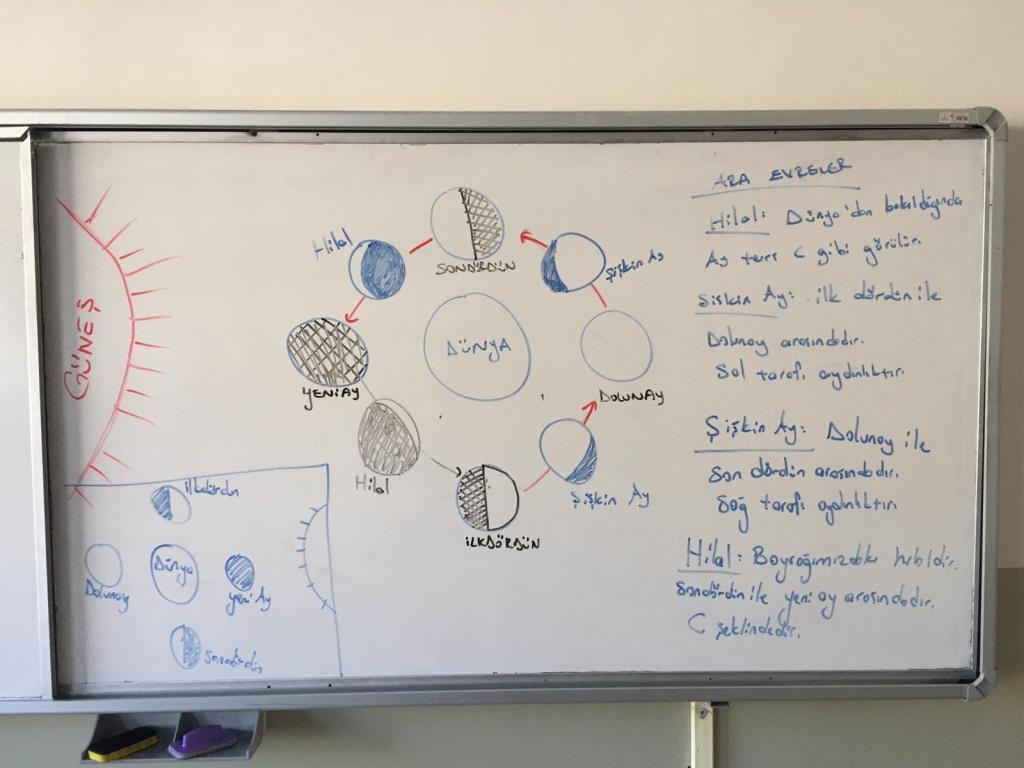 GÜNEŞ
Hilal
SONDÖRDÜN
Şişkin Ay
YENİAY
DÜNYA
DOLUNAY
Hilal
Şişkin Ay
İLKDÖRDÜN
ilkdördün
Dolunay
Dünya
Yeni Ay
Sondördün
ARA EVRELER
Hilal: Dünya'dan bakıldığında
Ay ters C gibi görülür.
Şişkin Ay: ilk dördün ile
Dolunay arasındadır.
Sol tarafı aydınlıktır.
Şişkin Ay: Dolunay ile
Son dördün arasındadır.
Sağ tarafı aydınlıktır
Hilal: Bayrağımızdaki
Sondördün ile yeni ay arasındadır.
C şeklindedir.